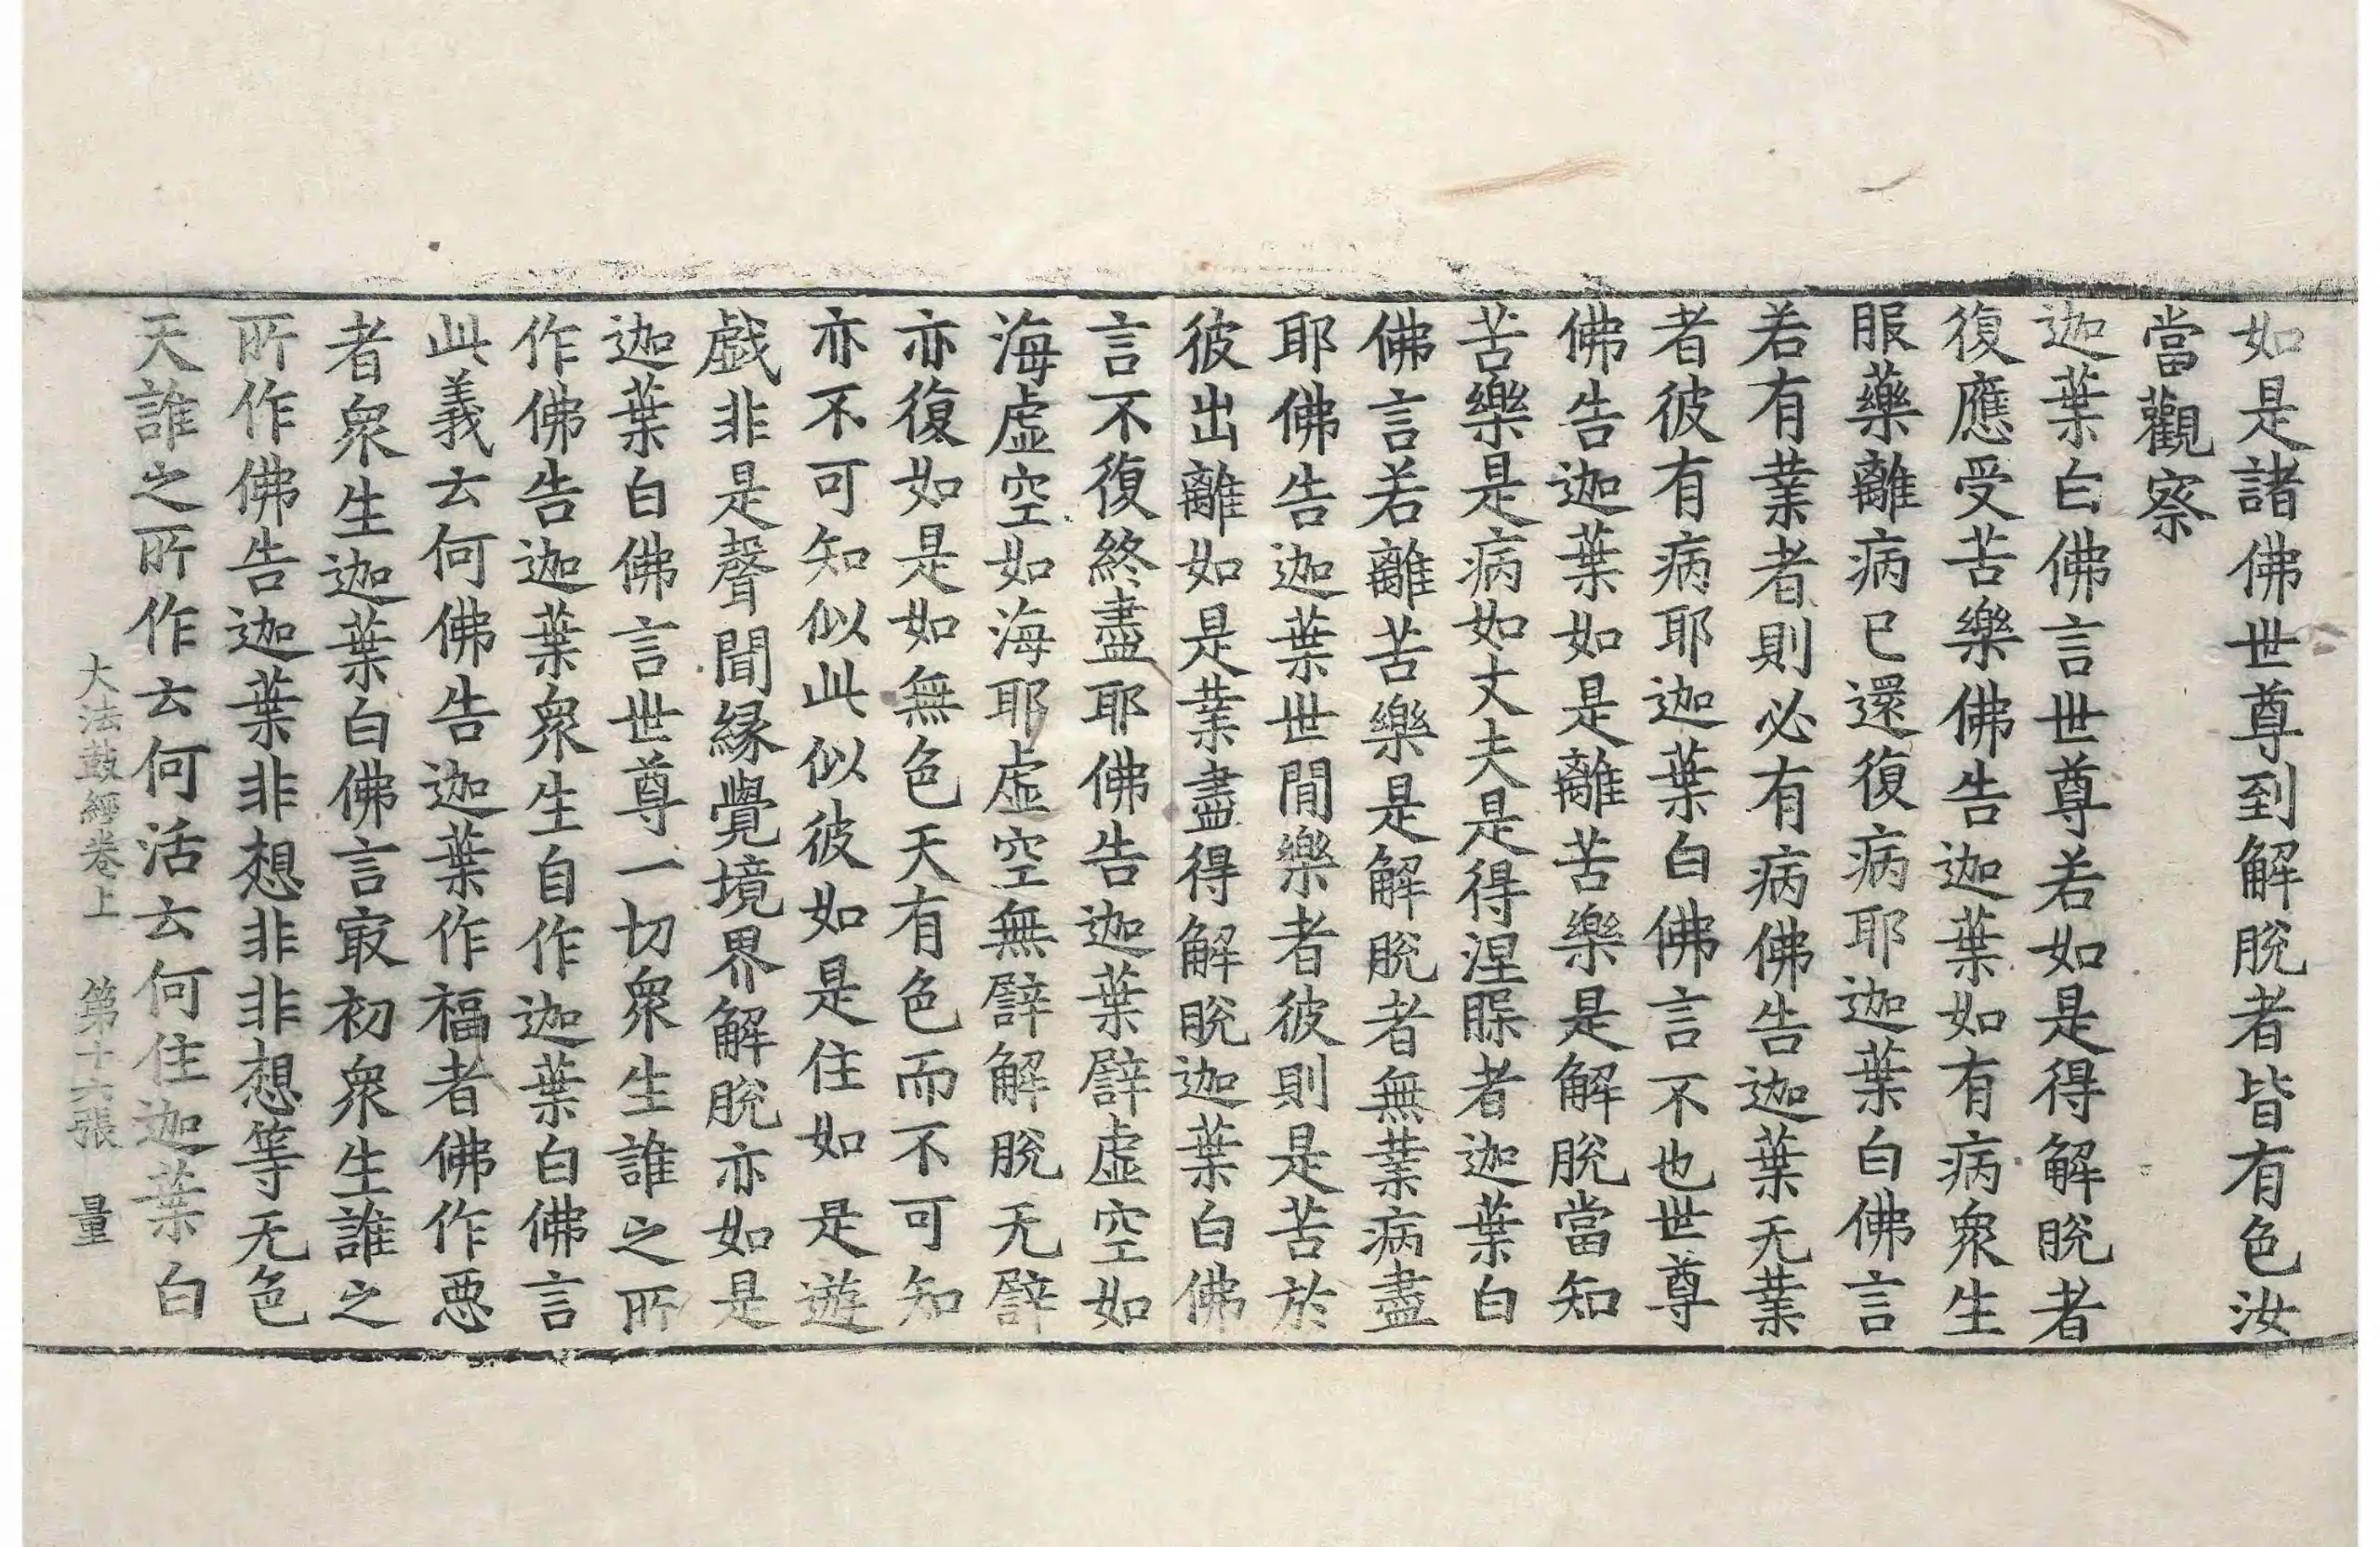 如是諸佛世尊到解脫者皆有色汝
當觀察
迦葉白佛言世尊若如是得解脫者
復應受苦樂佛告迦葉如有病衆生
服藥離病已還復病耶迦葉白佛言
若有業者則必有病佛告迦葉无業
者彼有病耶迦葉白佛言不也世尊
佛告迦葉如是離苦樂是解脫當知
苦樂是病如丈夫是得涅槃者迦葉白
佛言若離苦樂是解脫者無業病盡
耶佛告迦葉世間樂者彼則是苦於
彼出離如是業盡得解脫迦葉白佛
言不復終盡耶佛告迦葉譬虛空如
海虛空如海耶虛空無譬解脫无譬
亦復如是如無色天有色而不可知
亦不可知似此似彼如是住如是遊
戲非是聲聞緣覺境界解脫亦如是
迦葉白佛言世尊一切衆生誰之所
作佛告迦葉衆生自作迦葉白佛言
此義云何佛告迦葉作福者佛作惡
者衆生迦葉白佛言冣初衆生誰之
所作佛告迦葉非想非非想等无色
天誰之所作云何活云何住迦葉白
大法鼓經卷上 第十六張 量